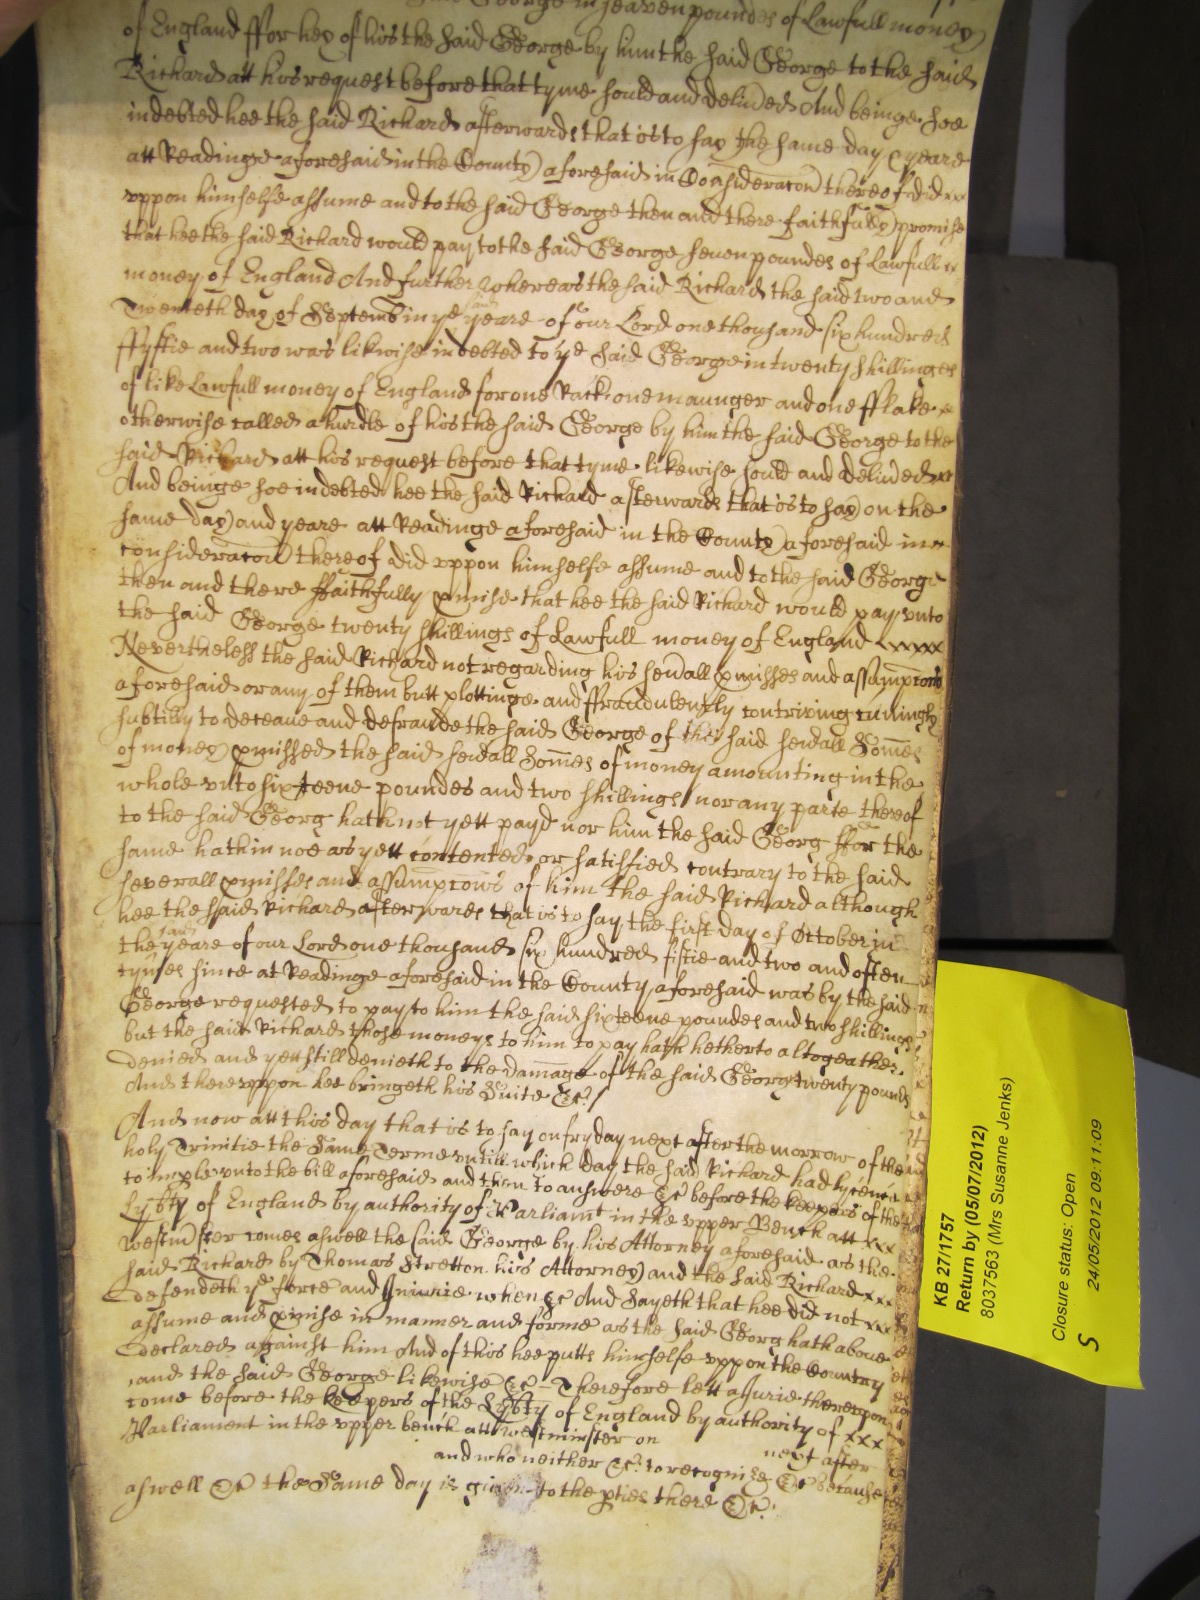 said George in seaven poundes of Lawfull money
of England ffor hey of his the said George by him the said George to the said
Richard att his request before that tyme sould and deliuered And beinge soe
indebted hee the said Richard afterwards that is to say the same day & yeare
att Readinge aforesaid in the County aforesaid in Consideracon thereof did xxx
vppon himselfe assume and to the said George then and there faithfully promise
that hee the said Richard would pay to the said George seuen poundes of Lawfull x
money of England And further whereas the said Richard the said two and
Twentieth day of Septemb in ye said yeare of our Lord one thousand six hundred
ffyftie and two was likwise indebted to ye said George in twenty shillinges
of like Lawfull money of England for one Rack one maunger and one fflake x
otherwise called a hurdle of his the said George by him the said George to the
said Richard att his request before that tyme likewise sould and deliuered xx
And beinge soe indebted hee the said Richard afterwards that is to say on the
same day and yeare att Readinge aforesaid in the County aforesaid in x
consideracon thereof did vppon himselfe assume and to the said George
then and there ffaithfully pmise that hee the said Richard would pay vnto
the said George twenty shillings of Lawfull money of England xxxxx
Nevertheless the said Richard not regarding his seuall pmisses and assumpcons
aforesaid or any of them butt plottinge and ffraudulently contriving cuningly
subtilly to deceaue and defraude the said George of the said seuall Somes
of money pmissed the said seuall Somes of money amounting in the
whole vnto sixteene poundes and two shillings nor any parte thereof
to the said Georg hath not yett payd nor him the said Georg ffor the
same hath in noe ways yett contented or satisfied contrary to the said
severall pmisses and assumpcons of him the said Richard although
hee the said Richard afterwards that is to say the first day of October in
the said yeare of our Lord one thousand six hundred fiftie and two and often
tymes since at Readinge aforesaid in the County aforesaid was by the said
George requested to pay to him the said sixteene poundes and two shillings
but the said Richard those moneys to him to pay hath hetherto altogeather
denied and yett still denieth to the damage of the said Georg twenty pounds
And therevppon hee bringeth his Suite &c
And now att this day that is to say on fryday next after the morrow of the
holy Trinitie the Same Terme vntill which day the said Richard had lycence
to imple vnto the bill aforesaid and then to answere &c before the keepers of the
Lybty of England by authority of Parliamt in the vpper Bench att xxx
Westminster comes aswell the said George by his Attorney aforesaid as the
said Richard by Thomas Stretton his Attorney and the said Richard xxx
defendeth ye force and Iniurie when &c And Sayeth that hee did not xxx
assume and pmise in manner and forme as the said Georg hath aboue
declared against him And of this hee putts himselfe vppon the Country
and the said George likewise &c Therefore lett a Jurie therevpon
come before the keepers of the Lybty of England by authority of xxx
Parliament in the vpper bench att Westminster on
next after
and who neither &c to recognize &c because
aswell &c the Same day is giuen to the pties there &c
KB 27/1757
Return by (05/07/2012)
8037563 (Mrs Susanne Jenks)
Closure status: Open
S 24/05/2012 09:11:09